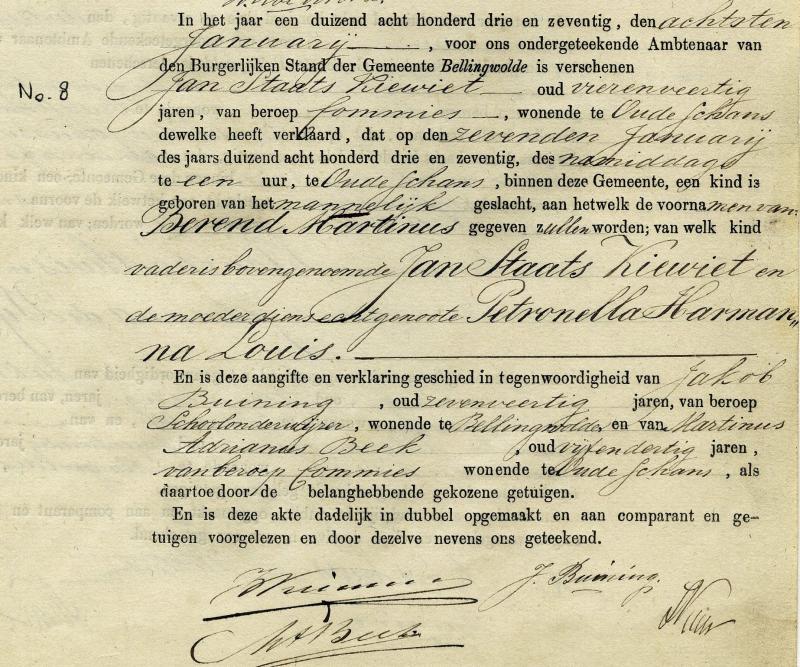 In het jaar een duizend acht honderd drie en zeventig, den achtsten
Januarij, voor ons ondergeteekende Ambtenaar van
den Burgerlijken Stand der Gemeente Bellingwolde is verschenen
No. 8
Jan Staats Kiewiet oud vierenveertig
jaren, van beroep Commies, wonende te Oude Schans
dewelke heeft verklaard, dat op den zevenden Januarij
des jaars duizend acht honderd drie en zeventig, des namiddags
te een uur, te Oude Schans, binnen deze Gemeente, een kind is
geboren van het mannelijk geslacht, aan hetwelk de voornamen van
Berend Martinus gegeven zullen worden; van welk kind
vader is bovengenoemde Jan Staats Kiewiet en
de moeder diens echtgenoote Petronella Harman„
na Louis.
En is deze aangifte en verklaring geschied in tegenwoordigheid van Jakob
Buining, oud zevenveertig jaren, van beroep
Schoolonderwijzer, wonende te Bellingwolde en van Martinus
Adrianus Beek, oud vijfendertig jaren,
van beroep Commies wonende te Oude Schans, als
daartoe door de belanghebbende gekozene getuigen.
En is deze akte dadelijk in dubbel opgemaakt en aan comparant en ge-
tuigen voorgelezen en door dezelve nevens ons geteekend.
J. Buining.
MABeek